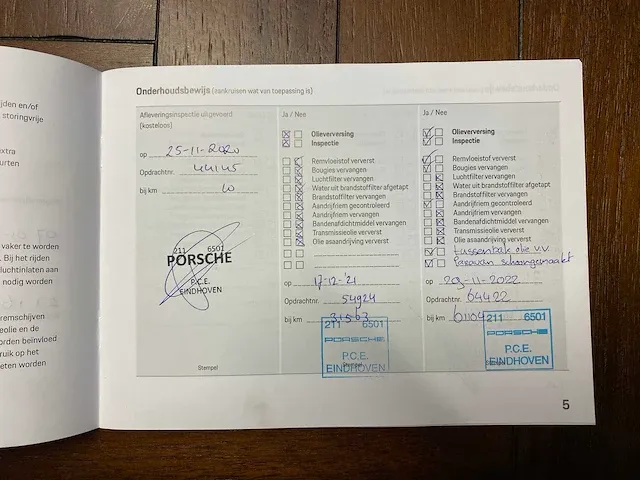 jden en/of
storingvrije
xtra
urten
vaker te worden
. Bij het rijden
luchtinlaten aan
nodig worden
remschijven
eolie en de
orden beïnvloed
ruik op het
eten worden
Onderhoudsbewijs (aankruisen wat van toepassing is)
Afleveringsinspectie uitgevoerd
(kosteloos)
op 25-11-2020
Opdrachtnr. 44145
bij km 10
211 6501
PORSCHE
P.C.E.
EINDHOVEN
Stempel
Ja / Nee
Olieverversing
Inspectie
Remvloeistof ververst
Bougies vervangen
Luchtfilter vervangen
Water uit brandstoffilter afgetapt
Brandstoffilter vervangen
Aandrijfriem gecontroleerd
Aandrijfriem vervangen
Bandenafdichtmiddel vervangen
Transmissieolie ververst
Olie asaandrijving ververst
op 17-12-'21
Opdrachtnr. 54924
bij km 31563
211 6501
PORSCHE
P.C.E.
EINDHOVEN
Stempel
Ja / Nee
Olieverversing
Inspectie
Remvloeistof ververst
Bougies vervangen
Luchtfilter vervangen
Water uit brandstoffilter afgetapt
Brandstoffilter vervangen
Aandrijfriem gecontroleerd
Aandrijfriem vervangen
Bandenafdichtmiddel vervangen
Transmissieolie ververst
Olie asaandrijving ververst
tussenbak olie v.v.
schoongemaakt
op 29-11-2022
Opdrachtnr. 64422
bij km 61104
211 6501
PORSCHE
P.C.E.
EINDHOVEN
5